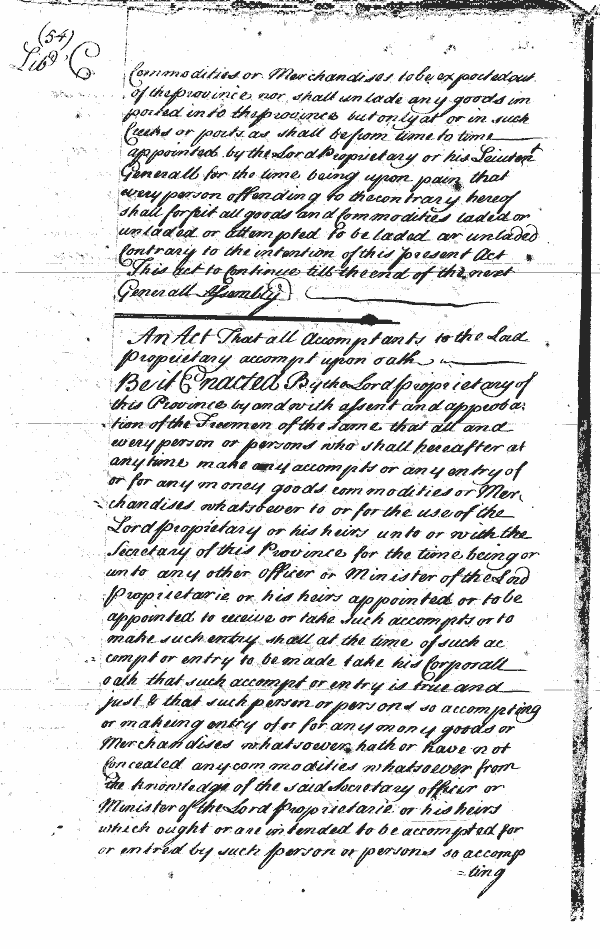 (54)
Lib C
Commodities or Merchandises to be exported out
of the province nor shall unlade any goods im
ported into the province but only at or in such
Creeks or ports as shall be from time to time
appointed by the Lord Proprietary or his Leiutent
Generall for the time being upon pain that
every person offending to the contrary hereof
shall forfeit all goods and Commodities laded or
unladed or attempted to be laded or unladed
Contrary to the intention of this present Act
This act to Continue till the end of the next
Generall Assembly
An Act That all Accomptants to the Lord
Proprietary accompt upon oath
Be it Enacted By the Lord Proprietary of
this Province by and with assent and approba:
tion of the Freemen of the same that all and
every person or persons who shall hereafter at
any time make any accompts or any entry of
or for any money goods commodities or Mer
chandises whatsoever to or for the use of the
Lord Proprietary or his heirs unto or with the
Secretary of this Province for the time being or
unto any other Officer or Minister of the Lord
Proprietarie or his heirs appointed or to be
appointed to receive or take such accompts or to
make such entry shall at the time of such ac
compt or entry to be made take his Corporall
oath that such accompt or entry is true and
just & that such person or persons so accompting
or makeing entry of or for any mony goods or
Merchandises whatsoever hath or have not
Concealed any commodities whatsoever from
the knowledge of the said Secretary officer or
Minister of the Lord Proprietarie or his heirs
which ought or are intended to be accompted for
or entred by such person or persons so accomp
=ting